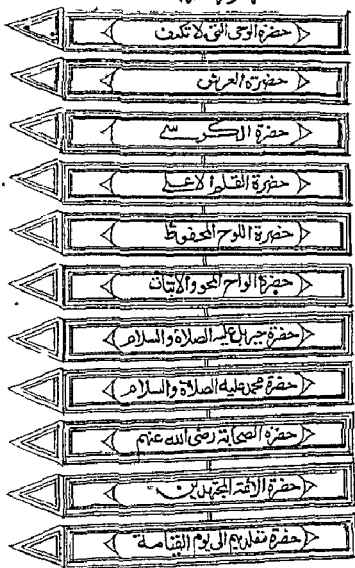 حضرة الوحى التى لا تكيف
حضرة العرش
حضرة الكرسي
حضرة القلم الاعلى
حضرة اللوح المحفوظ
حضرة الواح المحو والاثبات
حضرة جبريل عليه الصلاة والسلام
حضرة محمد عليه الصلاة والسلام
حضرة الصحابة رضى الله عنهم
حضرة الائمة المجتهدين
حضرة مقلديهم الى يوم القيامة